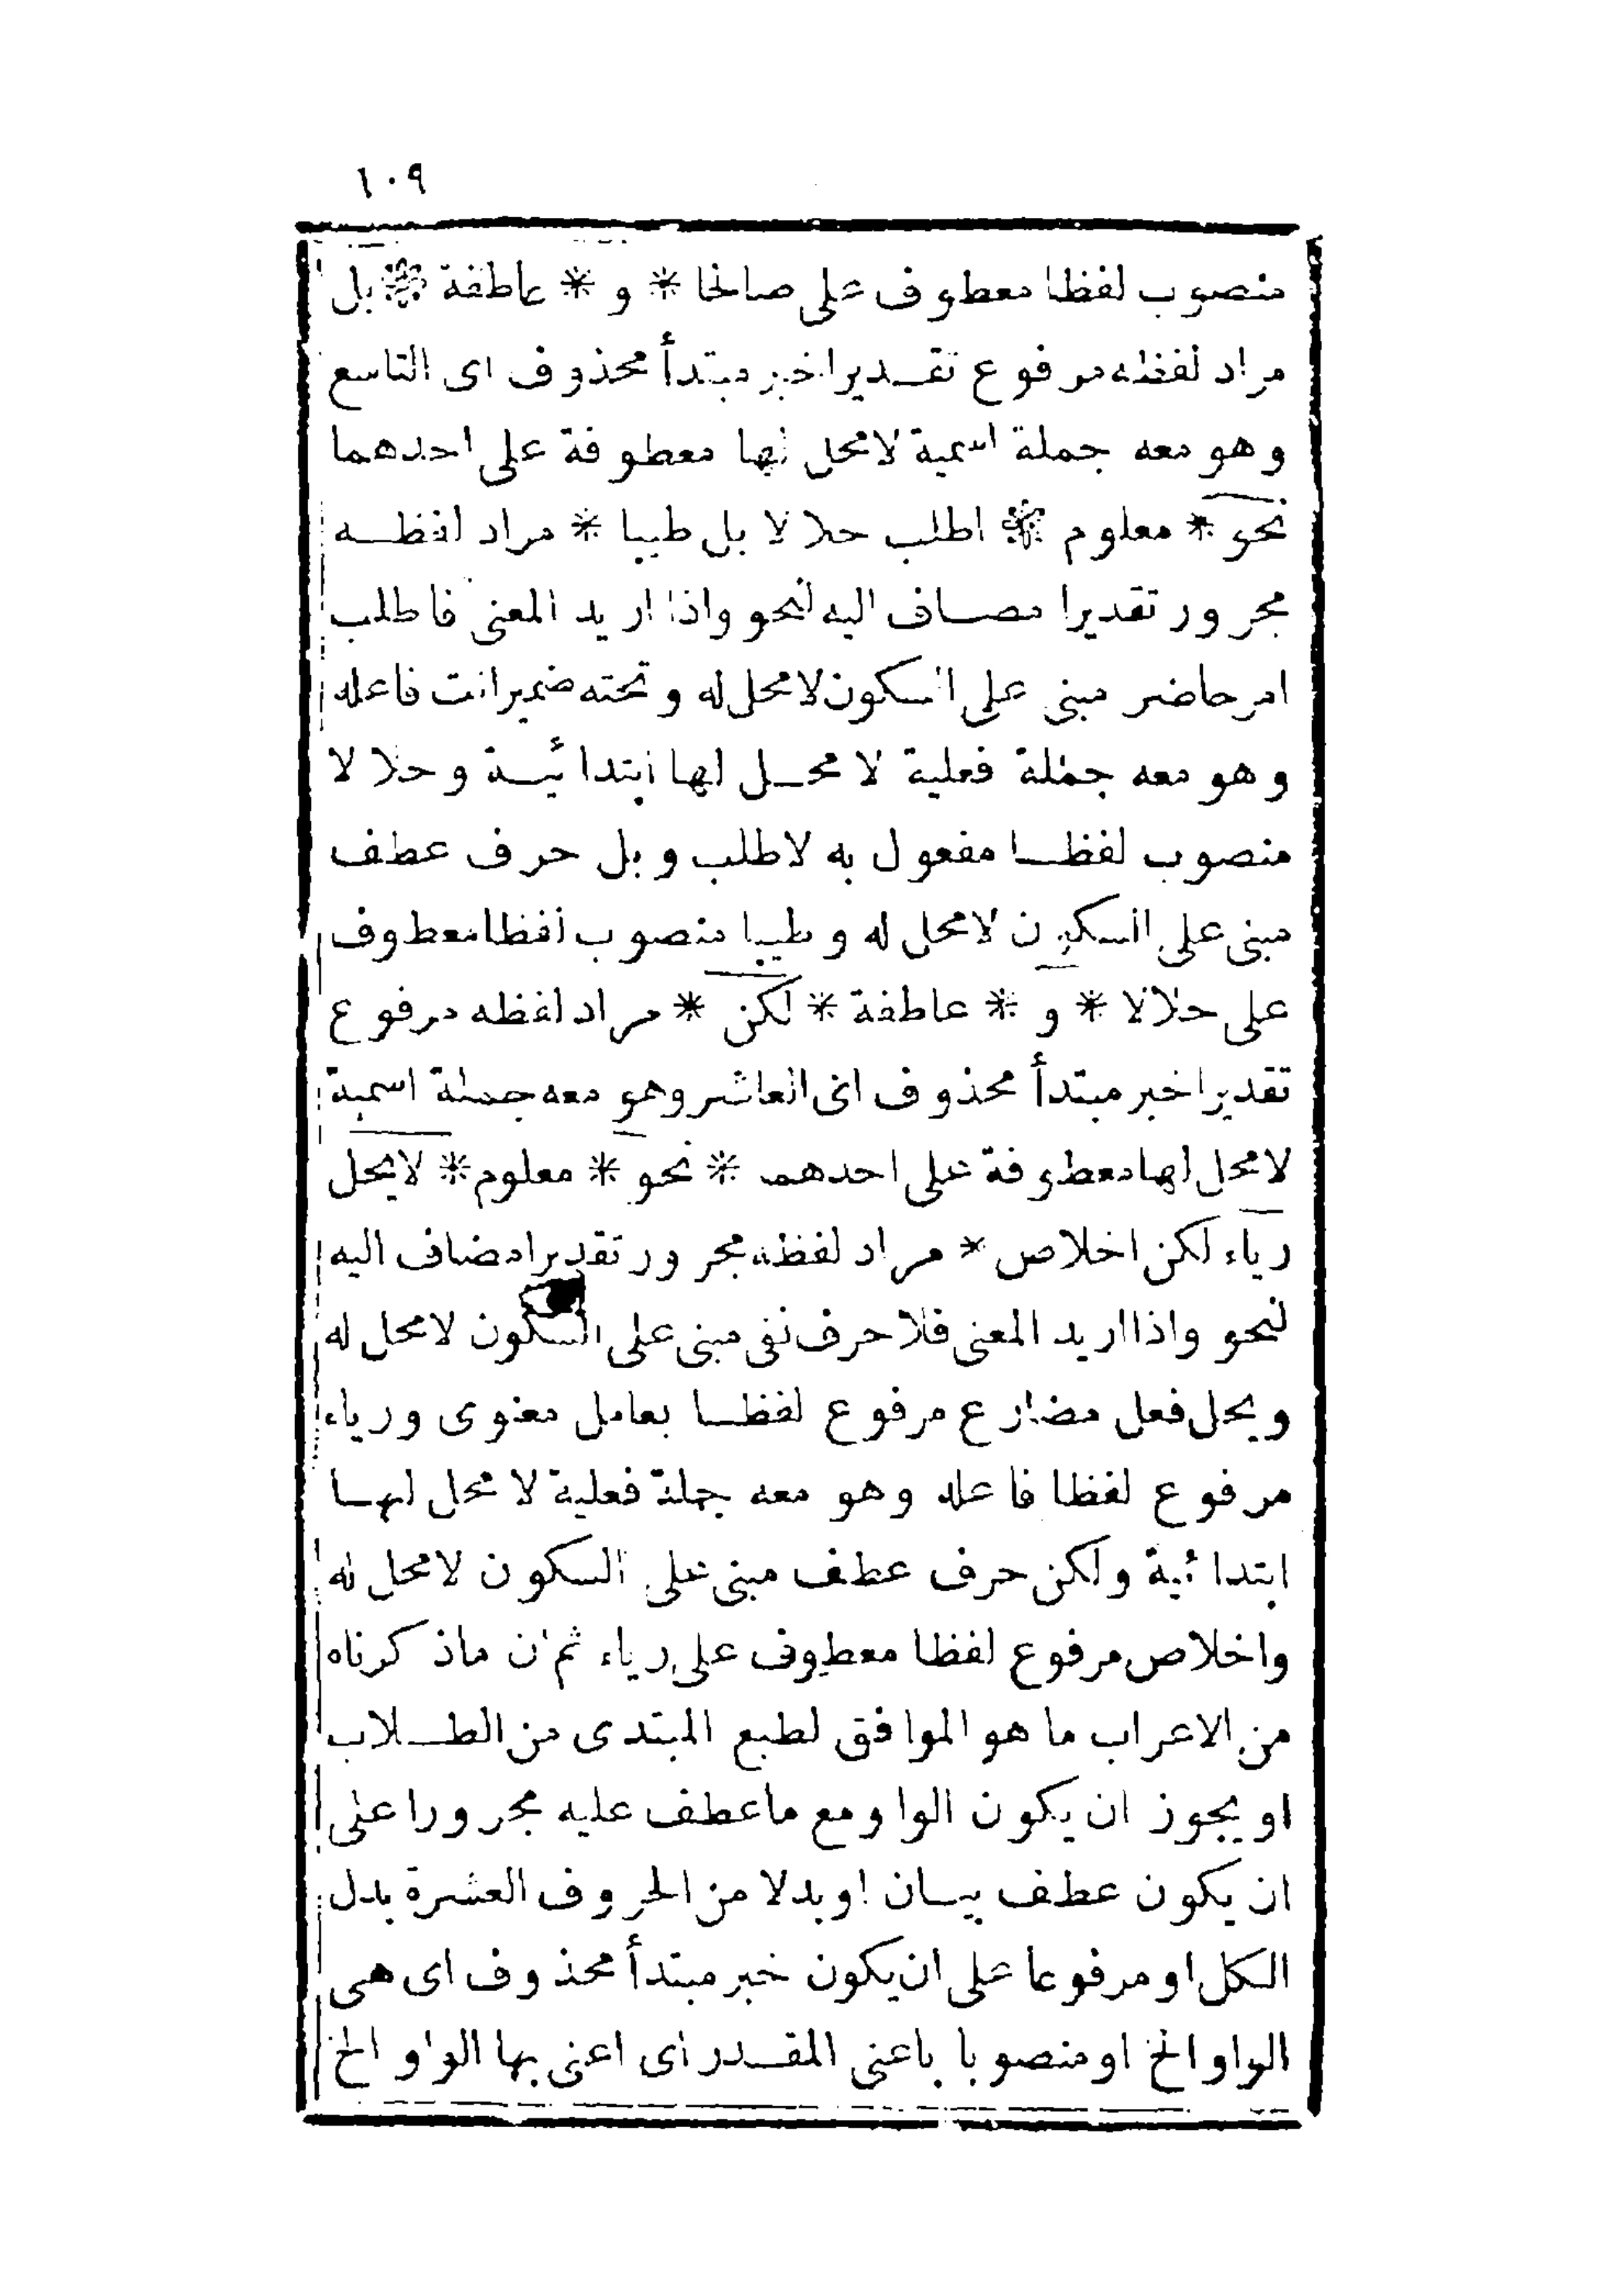 ١٠٩
منصوب لفظا معطوف على صالحا * و * عاطفة * بل
مراد لفظه مرفوع تقديرا خبر مبتدأ محذوف اى التاسع
وهو معه جملة اسمية لامحل لها معطوفة على احدهما
نحو * معلوم * اطلب حلالا بل طيبا * مراد لفظه
مجرور تقديرا مضاف اليه لنحو واذا اريد المعنى فاطلب
امر حاضر مبنى على السكون لامحل له وتحته ضمير انت فاعله
وهو معه جملة فعلية لا محل لها ابتدائية وحلالا
منصوب لفظا مفعول به لاطلب وبل حرف عطف
مبنى على السكون لامحل له وطيبا منصوب لفظا معطوف
على حلالا * و * عاطفة * لكن * مراد لفظه مرفوع
تقديرا خبر مبتدأ محذوف اى العاشر وهو معه جملة اسمية
لامحل لها معطوفة على احدهما * نحو * معلوم * لايحل
رياء لكن اخلاص * مراد لفظه مجرور تقديرا مضاف اليه
لنحو واذا اريد المعنى فلا حرف نفى مبنى على السكون لامحل له
ويحل فعل مضارع مرفوع لفظا بعامل معنوى ورياء
مرفوع لفظا فاعله وهو معه جملة فعلية لا محل لها
ابتدائية ولكن حرف عطف مبنى على السكون لامحل له
واخلاص مرفوع لفظا معطوف على رياء ثم ان ماذكرناه
من الاعراب ما هو الموافق لطبع المبتدى من الطلاب
او يجوز ان يكون الواو مع ماعطف عليه مجرورا على
ان يكون عطف بيان او بدلا من الحروف العشرة بدل
الكل او مرفوعا على ان يكون خبر مبتدأ محذوف اى هى
الواو الخ او منصوبا باعنى المقدر اى اعنى بها الواو الخ